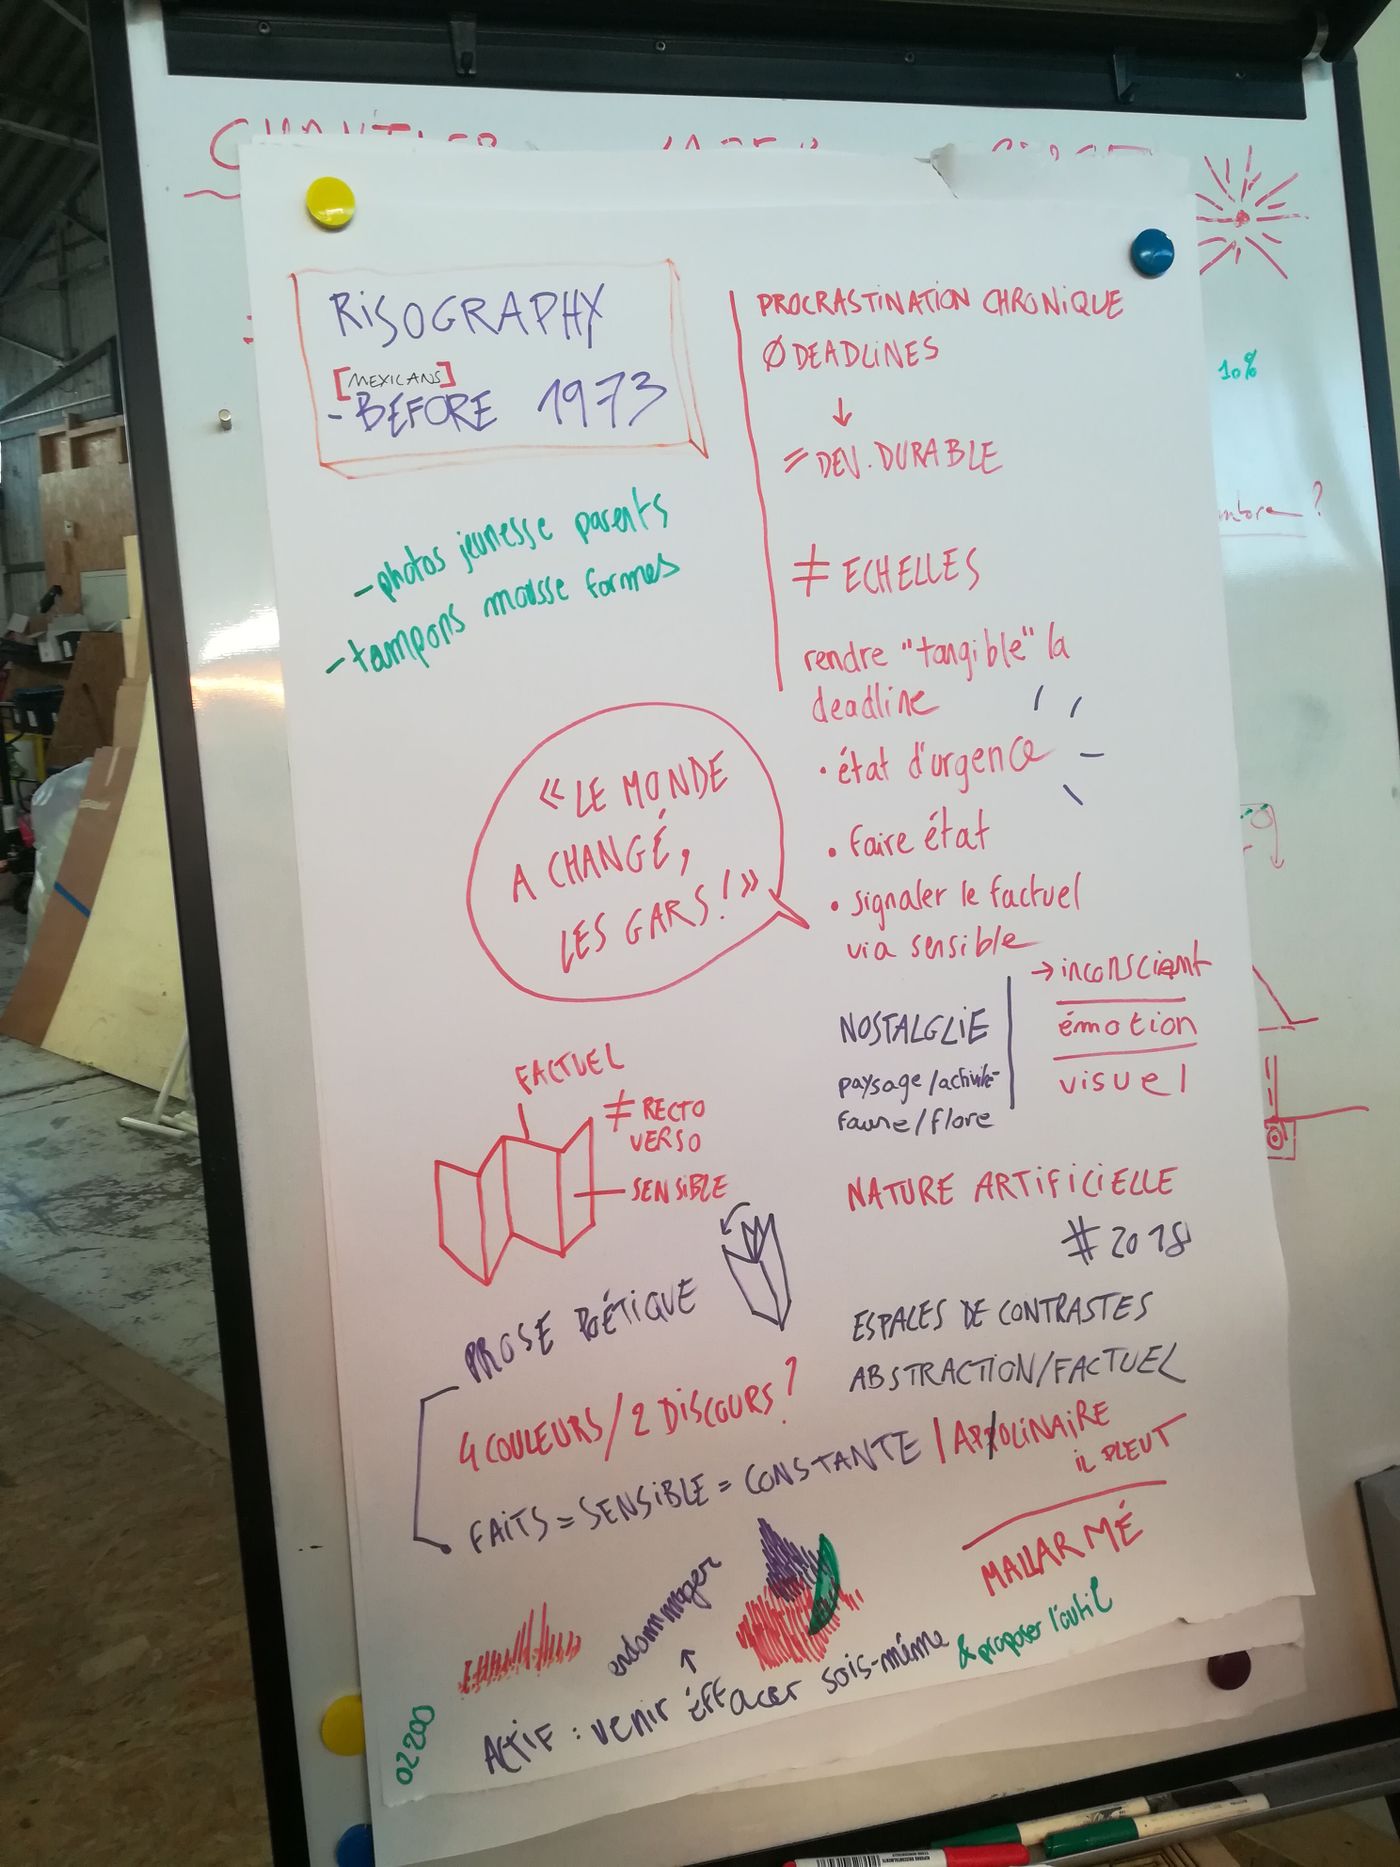 RISOGRAPHY
[MEXICANS]
- BEFORE 1973
- photos jeunesse parents
- tampons mousse formes
PROCRASTINATION CHRONIQUE
Ø DEADLINES
↓
= DEV. DURABLE
≠ ECHELLES
rendre "tangible" la
deadline
• état d'urgence
• faire état
• signaler le factuel
via sensible
« LE MONDE
A CHANGÉ,
LES GARS ! »
→ inconscient
émotion
visuel
NOSTALGLIE
paysage/activité
faune/flore
FACTUEL
≠ RECTO
VERSO
SENSIBLE
NATURE ARTIFICIELLE
#2018
PROSE POÉTIQUE
ESPALES DE CONTRASTES
ABSTRACTION/FACTUEL
4 COULEURS/2 DISCOURS?
FAITS = SENSIBLE = CONSTANTE / APPOLINAIRE
IL PLEUT
MALLARMÉ
endommager
↑
ACTIF : venir éffacer sois-même & proposer l'outil
02200
10%
?